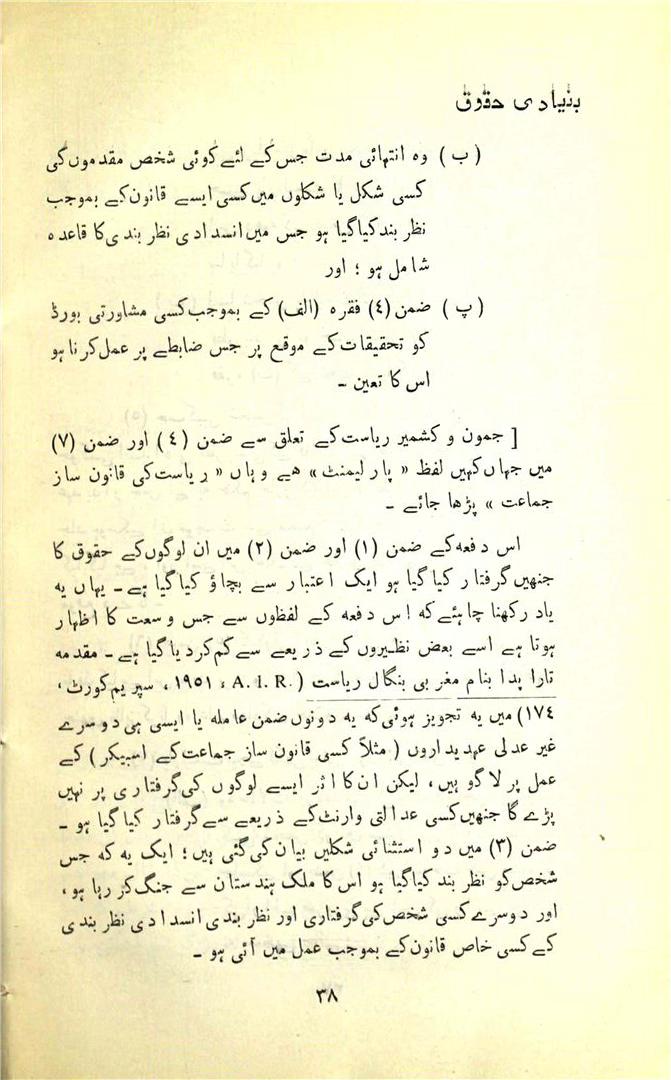 بنیادی حقوق
( ب ) وہ انتہائی مدت جس کے لئے کوئی شخص مقدموں کی
کسی شکل یا شکلوں میں کسی ایسے قانون کے بموجب
نظر بند کیا گیا ہو جس میں انسدادی نظر بندی کا قاعدہ
شامل ہو ؛ اور
( پ ) ضمن (٤) فقرہ (الف) کے بموجب کسی مشاورتی بورڈ
کو تحقیقات کے موقع پر جس ضابطے پر عمل کرنا ہو
اس کا تعین ۔
[ جموں و کشمیر ریاست کے تعلق سے ضمن (٤) اور ضمن (٧)
میں جہاں کہیں لفظ « پارلیمنٹ » ہے وہاں « ریاست کی قانون ساز
جماعت » پڑھا جائے ۔
اس دفعہ کے ضمن (١) اور ضمن (٢) میں ان لوگوں کے حقوق کا
جنھیں گرفتار کیا گیا ہو ایک اعتبار سے بچاؤ کیا گیا ہے ۔ یہاں یہ
یاد رکھنا چاہئے کہ اس دفعہ کے لفظوں سے جس وسعت کا اظہار
ہوتا ہے اسے بعض نظیروں کے ذریعے سے کم کر دیا گیا ہے ۔ مقدمہ
تارا پدا بنام مغربی بنگال ریاست ( .A. I. R ، ١٩٥١ ، سپریم کورٹ ،
١٧٤) میں یہ تجویز ہوئی کہ یہ دونوں ضمن عاملہ یا ایسی ہی دوسرے
غیر عدلی عہدیداروں ( مثلاً کسی قانون ساز جماعت کے اسپیکر ) کے
عمل پر لاگو ہیں ، لیکن ان کا اثر ایسے لوگوں کی گرفتاری پر نہیں
پڑے گا جنھیں کسی عدالتی وارنٹ کے ذریعے سے گرفتار کیا گیا ہو ۔
ضمن (٣) میں دو استثنائی شکلیں بیان کی گئی ہیں ؛ ایک یہ کہ جس
شخص کو نظر بند کیا گیا ہو اس کا ملک ہندستان سے جنگ کر رہا ہو ،
اور دوسرے کسی شخص کی گرفتاری اور نظر بندی انسدادی نظر بندی
کے کسی خاص قانون کے بموجب عمل میں آئی ہو ۔
٣٨